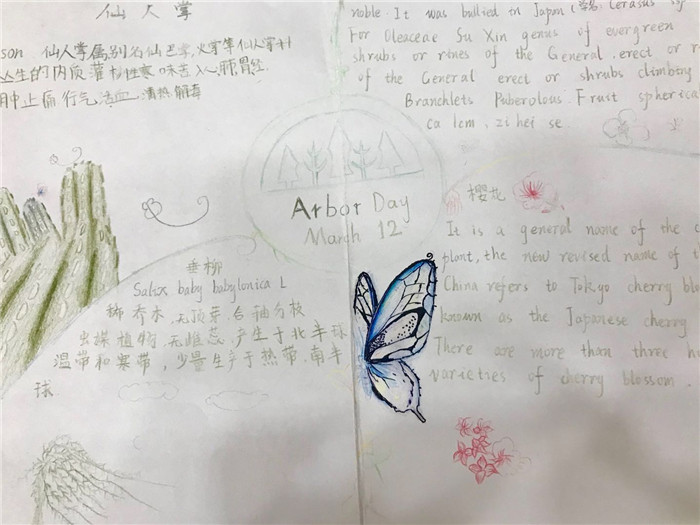 仙人掌
son 仙人掌属别名仙巴掌,火掌等仙人掌科
丛生的肉质灌 性寒 味苦入心,肺胃经.
行气活血.清热解毒
noble. It was bullied in Japan (学名: Cerasus
For Oleaceae Su Xin genus of evergreen
shrubs or rines of the General. erect or
of the General erect or shrubs climbing
Branchlets Puberolous. Frust spherical
ca 1cm, zi hei se.
Arbor Day
March 12
垂柳
Salix baby babylonica L
乔木,无顶芽,合轴分枝
无雌蕊,产生于北半球
温带和寒带,少量生产于热带.南半
球
樱花
It is a general name of the
plant, the new revised name of
China refers to Tokyo cherry
known as the Japanese cherry
There are more than three
varieties of cherry blossom.